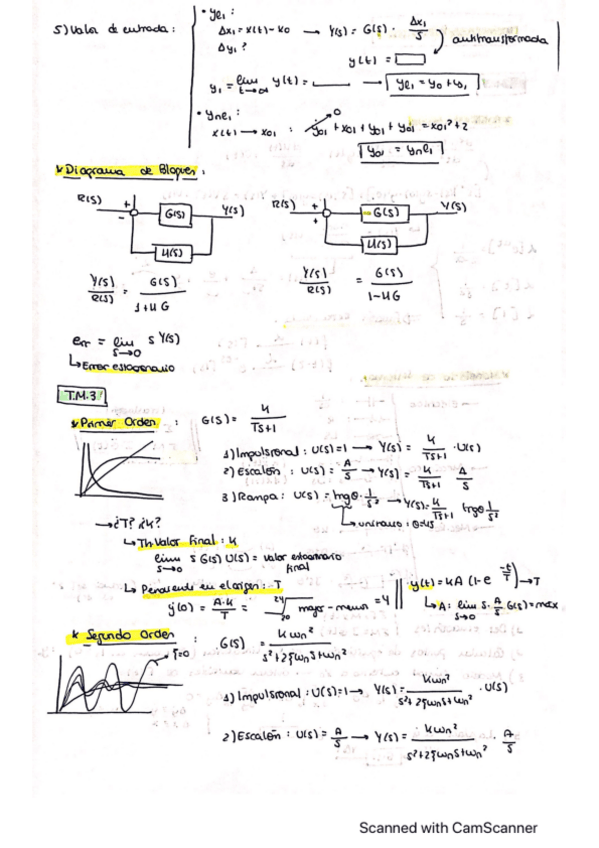 • ye₁ :
5) Valor de entrada : Δx₁ = x(t) - x₀ → Y(s) = G(s) · Δx₁/s
Δy₁ ? antitransformada
y(t) =
y₁ = lim t→∞ y(t) = ____ → ye₁ = y₀ +
• yne₁ :
x(t) → x₀₁ : ÿ₀₁ + x₀₁ + y₀₁ + = x₀₁² + 2
y₀₁ = yne₁
Diagrama de Bloques :
R(s) + - G(s) Y(s) H(s) R(s) + + G(s) Y(s) H(s)
Y(s)/R(s) = G(s)/(1+HG) Y(s)/R(s) = G(s)/(1-HG)
err = lim s→0 s Y(s)
↳ Error estacionario
T.M.3
* Primer Orden : G(s) = K/(Ts+1)
1) Impulsional : U(s)=1 → Y(s) = K/(Ts+1) · U(s)
2) Escalón : U(s) = A/s → Y(s) = K/(Ts+1) A/s
3) Rampa : U(s) = tgθ · 1/s² → Y(s) = K/(Ts+1) tgθ 1/s²
↳ unitario : θ=45
→ ¿T? ¿K?
↳ Th Valor Final : K
lim s→0 s G(s) U(s) = valor estacionario final
↳ Pendiente en el origen : T
ẏ(0) = A·K/T = mayor - menor = 4 || y(t) = KA (1-e^(-t/T)) → T
↳ A : lim s→0 s · A/s G(s) = max
* Segundo Orden : G(s) = Kωn²/(s²+2ξωns+ωn²)
ξ=0
1) Impulsional : U(s)=1 → Y(s) = Kωn²/(s²+2ξωns+ωn²) · U(s)
2) Escalón : U(s) = A/s → Y(s) = Kωn²/(s²+2ξωns+ωn²) · A/s
Scanned with CamScanner